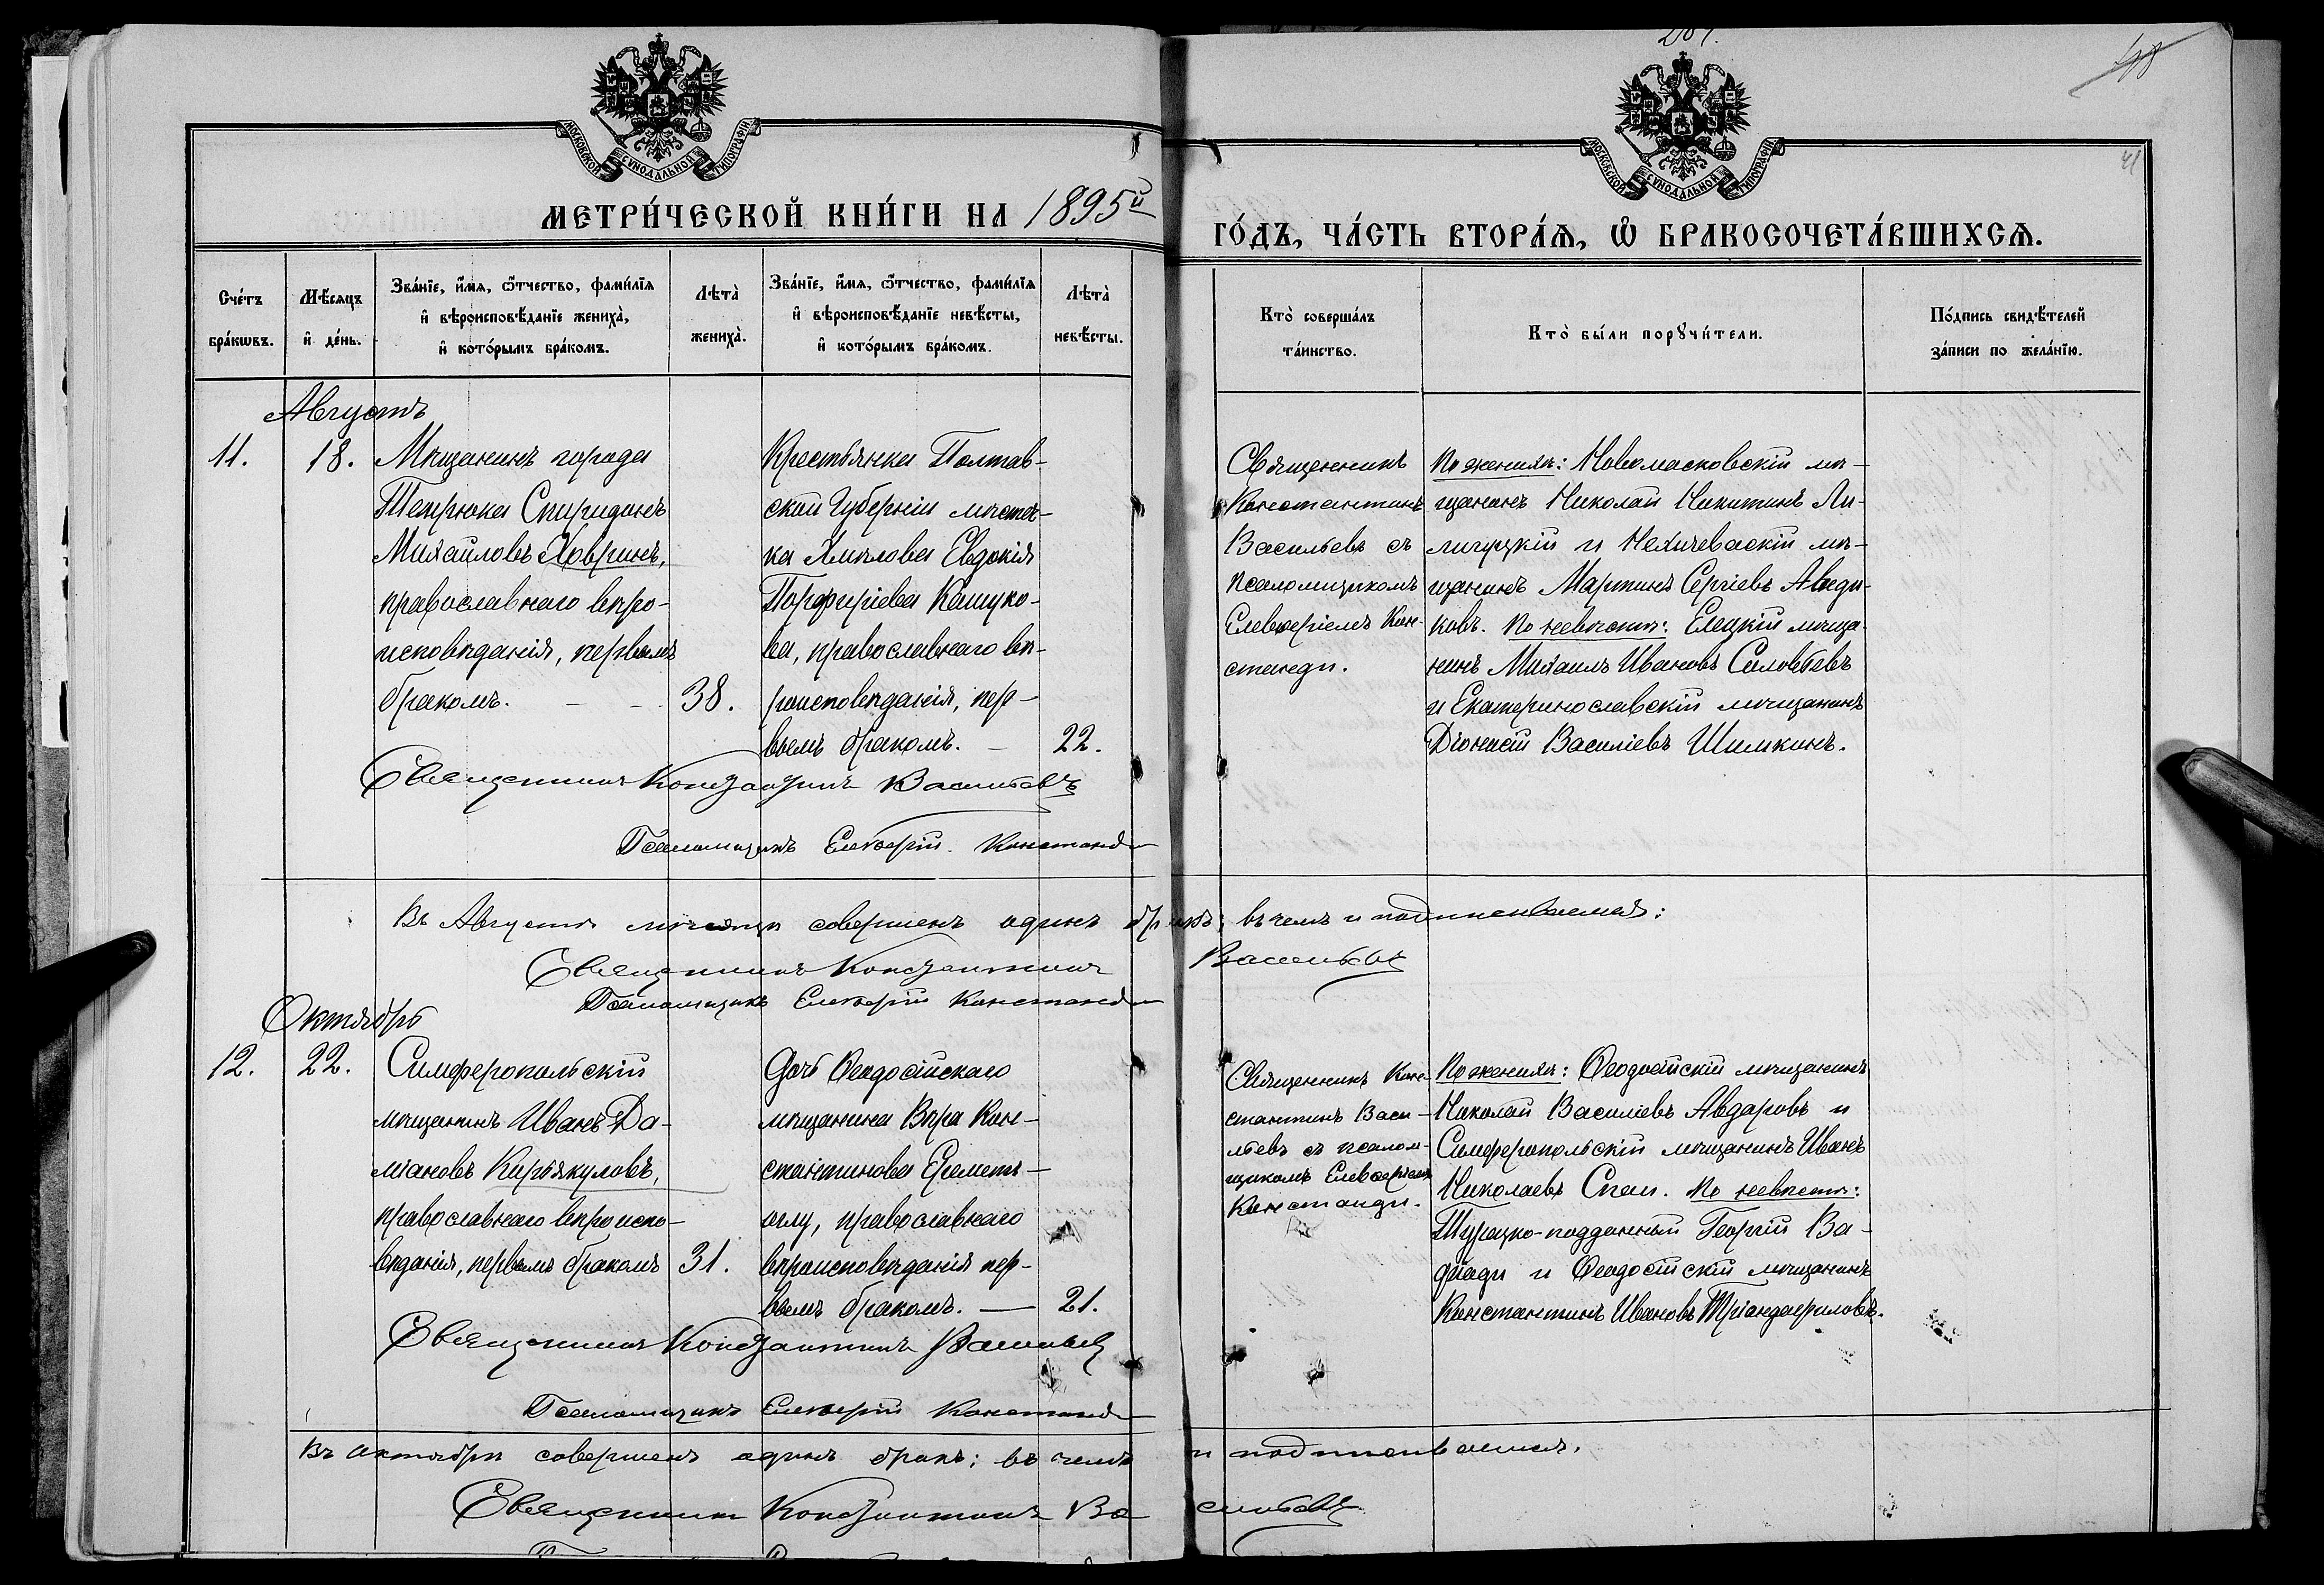 201.
48
41
МОСКОВСКОЙ СѴНОДАЛЬНОЙ ТИПОГРАФІИ
МОСКОВСКОЙ СѴНОДАЛЬНОЙ ТИПОГРАФІИ
МЕТРИ́ЧЕСКОЙ КНИ́ГИ НА 1895й
ГО́ДЪ, ЧА́СТЬ ВТОРА́Ѧ, Ѡ҆ БРАКОСОЧЕТА́ВШИХСѦ.
Сче́тъ бра́кѡвъ.
Мѣ́сяцъ и҆ де́нь.
Зва́нїе, и҆́мя, ѻ҆́тчество, фами́лїя и҆ вѣроисповѣ́данїе жениха̀, и҆ кото́рымъ бра́комъ.
Лѣта̀ жениха̀.
Зва́нїе, и҆́мя, ѻ҆́тчество, фами́лїя и҆ вѣроисповѣ́данїе невѣ́сты, и҆ кото́рымъ бра́комъ.
Лѣта̀ невѣ́сты.
Кто̀ соверша́лъ та́инство.
Кто̀ бы́ли порꙋчи́тели.
По́дпись свидѣ́телей за́писи по жела́нїю.
Августъ
11.
18.
Мѣщанинъ города
Темрюка Спиридонъ
Михаиловъ Ховринъ,
православнаго вѣро-
исповѣданія, первымъ
бракомъ. - -
38.
Крестьянка Полтав-
ской Губерніи мѣстеч-
ка Хмѣлова Евдокія
Порфиріева Кашуко-
ва, православнаго вѣ-
роисповѣданія, пер-
вымъ бракомъ. -
22.
Священникъ
Константинъ
Васильевъ съ
псаломщикомъ
Елевѳеріемъ Кон-
станди.
По женихѣ: Новомосковскій мѣ-
щанинъ Николай Никитинъ Ли-
личуцкій и Нахичеваскій мѣ-
щанинъ Мартинъ Сергіевъ Аведи-
ковъ. По невѣстѣ: Елецкій мѣща-
нинъ Михаилъ Ивановъ Соловьевъ
и Екатеринославскій мѣщанинъ
Діонисій Василіевъ Шишкинъ.
Священникъ Константинъ Васильевъ
Псаломщикъ Елевѳерій Констанди
Въ Августѣ мѣсяцѣ совершенъ одинъ бракъ; въ чемъ и подписываемся:
Священникъ Константинъ Васильевъ
Псаломщикъ Елевѳерій Констанди
Октябрь
12.
22.
Симферопольскій
мѣщанинъ Иванъ Да-
міановъ Кирьякуловъ,
православнаго вѣроиспо-
вѣданія, первымъ бракомъ
31.
Дочь Ѳеодосійскаго
мѣщанина Вѣра Кон-
стантинова Еремет-
оглу, православнаго
вѣроисповѣданія пер-
вымъ бракомъ. —
21.
Священникъ Кон-
стантинъ Васи-
льевъ съ псалом-
щикомъ Елевѳеріемъ
Констанди.
По женихѣ: Ѳеодосійскій мѣщанинъ
Николай Василіевъ Авдаровъ и
Симферопольскій мѣщанинъ Иванъ
Николаевъ Спаи. По невѣстѣ:
Турецко-подданный Георгій Ва-
фіади и Ѳеодосійскій мѣщанинъ
Константинъ Ивановъ Тріандафиловъ.
Священникъ Константинъ Васильевъ
Псаломщикъ Елевѳерій Констанди
Въ октябрѣ совершенъ одинъ бракъ; въ чемъ и подписываемся.
Священникъ Константинъ Васильевъ